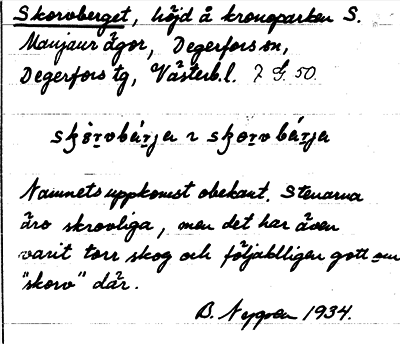 Skorvberget, höjd å kronoparken S.
Manjaur ägor, Degerfors sn,
Degerfors tg, Västerb.l. 7 G. 50
skǒrvbárja ~ skorvbárja
Namnets uppkomst obekant. Stenarna
äro skrovliga, men det har även
varit torr skog och följaktligen gott om
"skorv" där.
B. Nygren 1934.